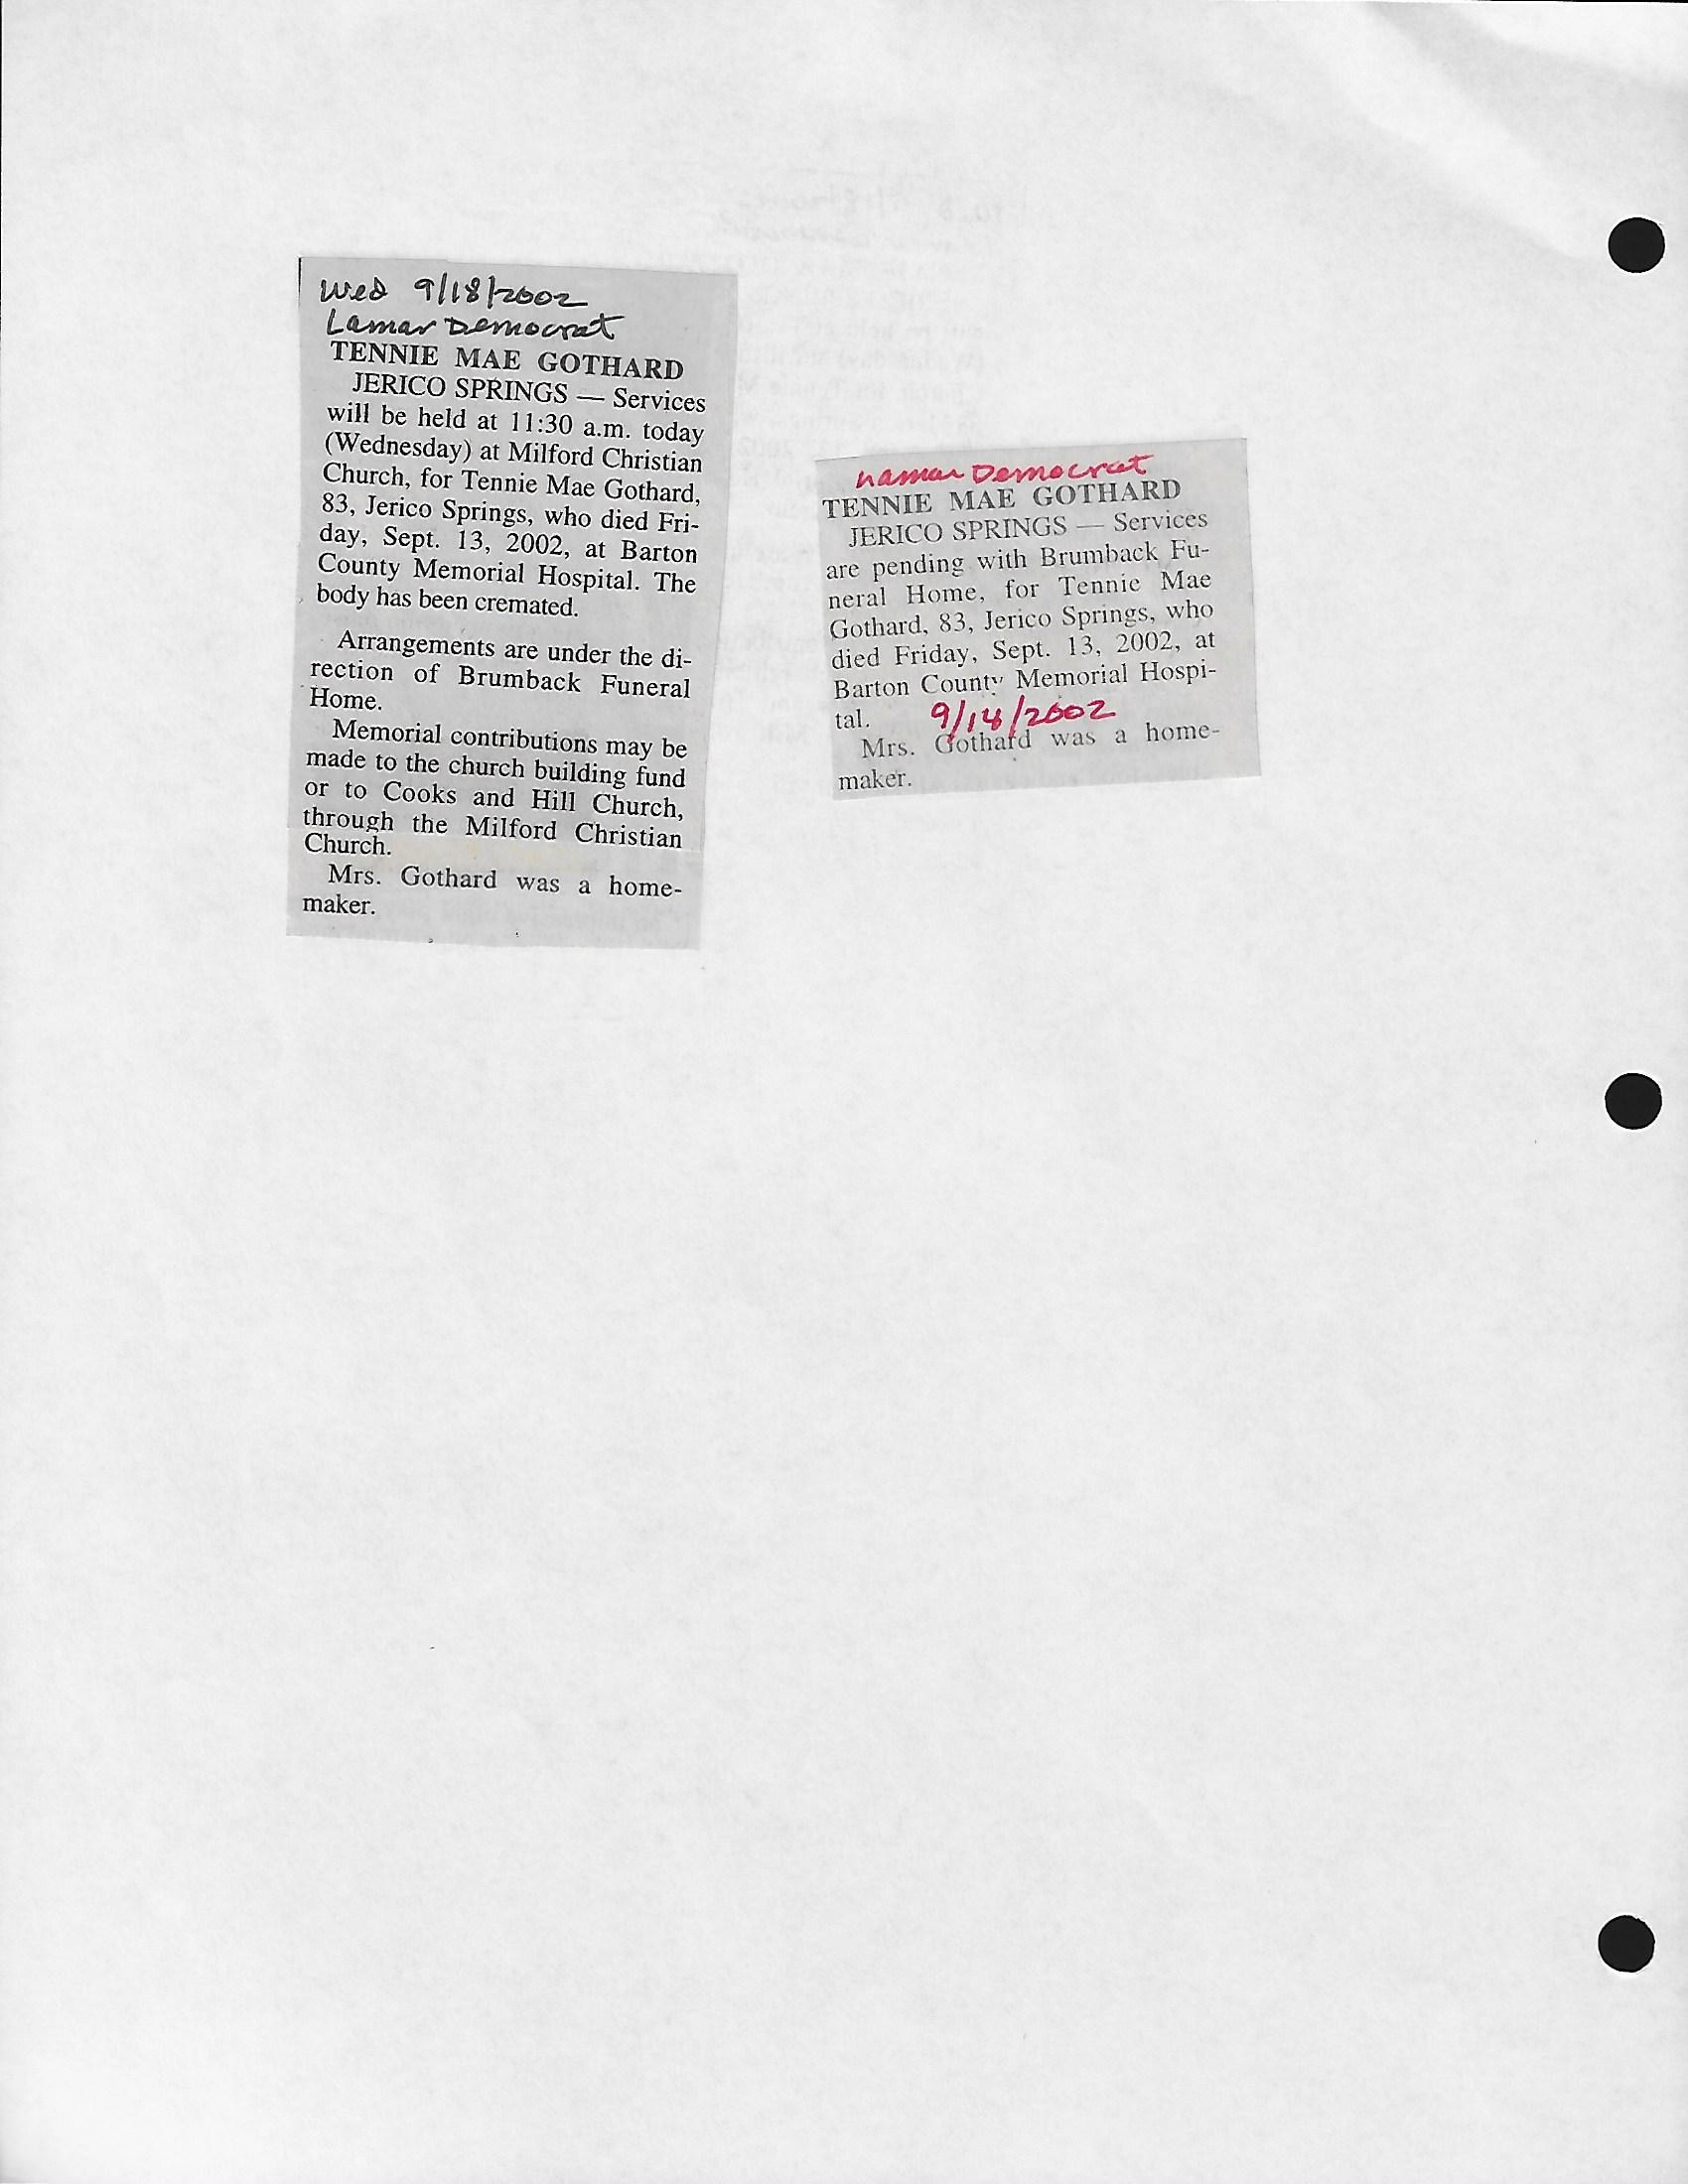 Wed 9/18/2002
Lamar Democrat
TENNIE MAE GOTHARD
JERICO SPRINGS — Services
will be held at 11:30 a.m. today
(Wednesday) at Milford Christian
Church, for Tennie Mae Gothard,
83, Jerico Springs, who died Fri-
day, Sept. 13, 2002, at Barton
County Memorial Hospital. The
body has been cremated.
Arrangements are under the di-
rection of Brumback Funeral
Home.
Memorial contributions may be
made to the church building fund
or to Cooks and Hill Church,
through the Milford Christian
Church.
Mrs. Gothard was a home-
maker.
Lamar Democrat
TENNIE MAE GOTHARD
JERICO SPRINGS — Services
are pending with Brumback Fu-
neral Home, for Tennie Mae
Gothard, 83, Jerico Springs, who
died Friday, Sept. 13, 2002, at
Barton County Memorial Hospi-
tal. 9/14/2002
Mrs. Gothard was a home-
maker.